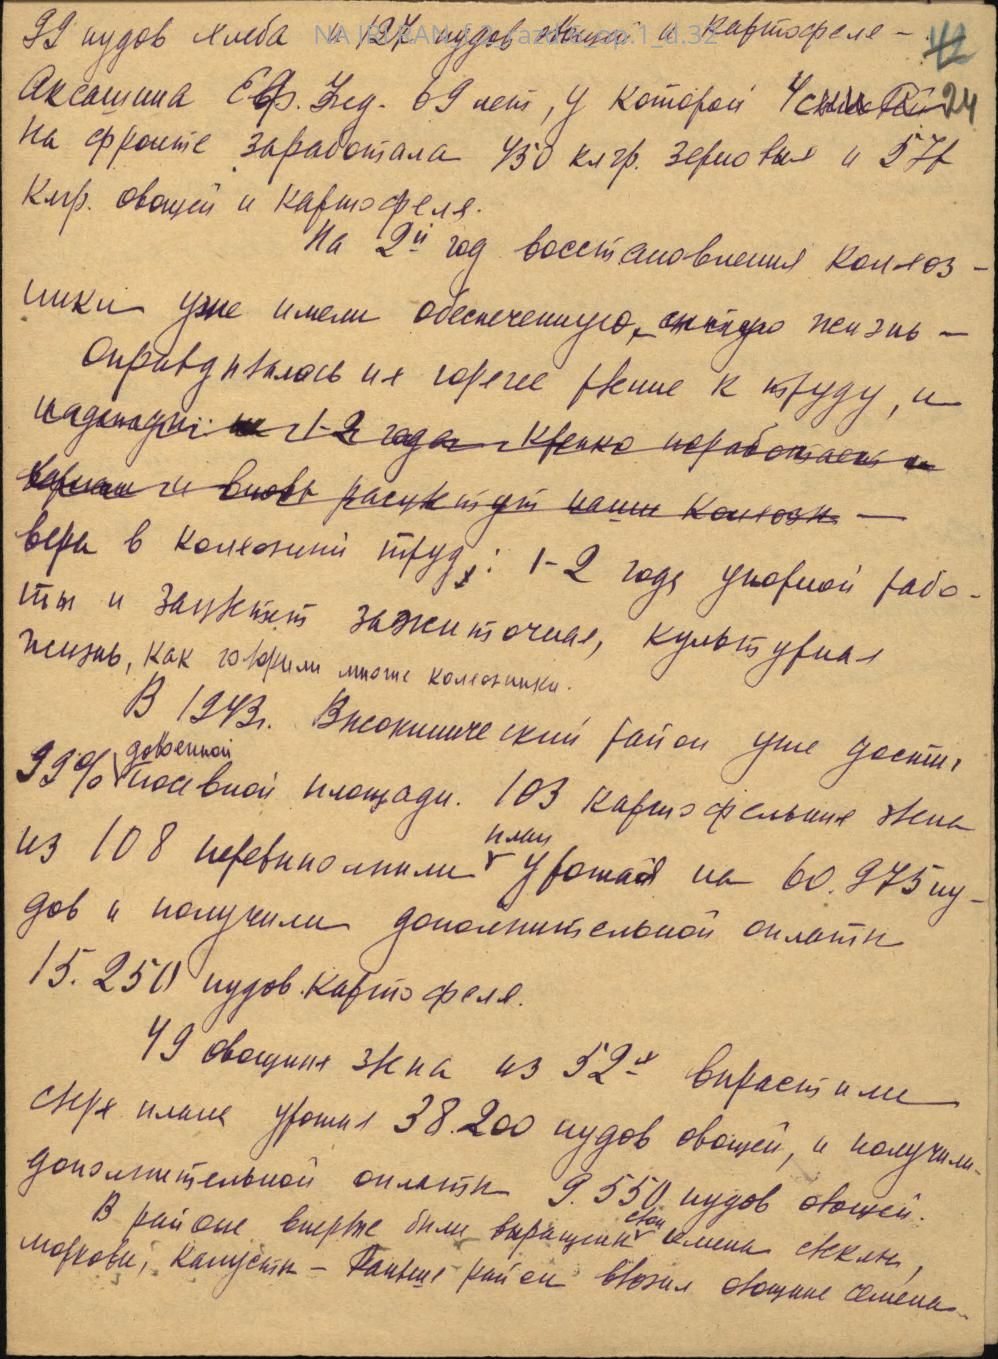 99 пудов хлеба и 127 пудов овощей и картофеля –
NA IRI RAN f.2_razd.X_op.1_d.32
42
24
Аксашина Евр. Фед. 69 лет, у которой 4 сына
на фронте заработала 450 клгр. зерновых и 577
клгр. овощей и картофеля.
На 2й год восстановления колхоз-
ники уже имели обеспеченную, сытую жизнь –
Оправдывалось их горячее рвение к труду, и
1-2 года крепко поработаем и
и вновь расцветут наши колхозы –
вера в колхозный труд: 1-2 года упорной рабо-
ты и зацветет зажиточная, культурная
жизнь, как говорили многие колхозники.
В 1943г. Высокиничский район уже достиг
99% довоенной посевной площади. 103 картофельных звена
из 108 перевыполнили план урожая на 60.975 пу-
дов и получили дополнительной оплаты
15.250 пудов картофеля.
49 овощных звена из 52х вырастили
сверх плана урожая 38.200 пудов овощей, и получили
дополнительной оплаты 9.550 пудов овощей.
В районе впервые были выращены свои семена свеклы,
моркови, капусты – Раньше район ввозил овощные семена